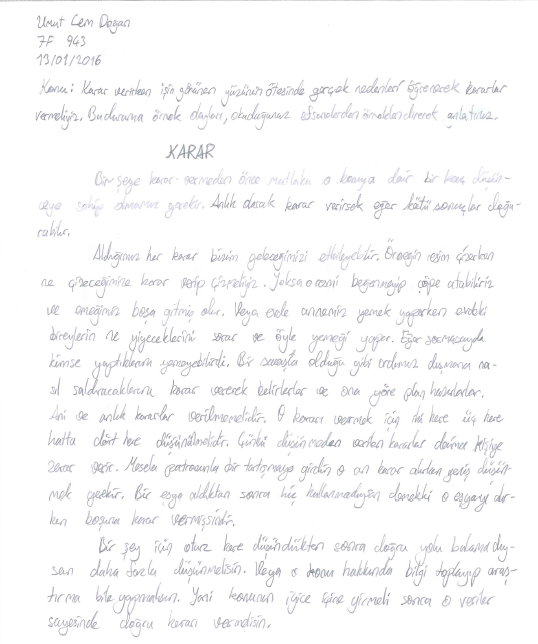 Umut Cem Doğan
7F 943
13/01/2016
Konu: Karar verirken işin görünen yüzünün ötesinde gerçek nedenleri öğrenerek kararlar
vermeliyiz. Bu duruma örnek olayları, okuduğunuz eserlerden örneklendirerek anlatınız.
KARAR
Bir şeye karar vermeden önce mutlaka o konuya dair bir kaç düşün-
ceye sahip olmamız gerekir. Anlık olarak karar verirsek eğer kötü sonuçlar doğu-
rabilir.
Aldığımız her karar bizim geleceğimizi etkileyebilir. Örneğin resim çizerken
ne çizeceğimize karar verip çizmeliyiz. Yoksa o resmi beğenmeyip çöpe atabiliriz
ve emeğimiz boşa gitmiş olur. Veya evde annemiz yemek yaparken evdeki
bireylerin ne yiyeceklerini sorar ve öyle yemeği yapar. Eğer sormasaydı
kimse yaptıklarını yemeyebilirdi. Bir savaşta olduğu gibi ordumuz düşmana na-
sıl saldıracaklarını karar vererek belirlerler ve ona göre plan hazırlarlar.
Ani ve anlık kararlar verilmemelidir. O kararı vermek için iki kere üç kere
hatta dört kere düşünülmelidir. Çünkü düşünmeden verilen kararlar daima kişiye
zarar verir. Mesela patronunla bir tartışmaya girdin o an karar alırken geniş düşün-
mek gerekir. Bir eşya aldıktan sonra hiç kullanmadıysan demekki o eşyayı alır-
ken boşuna karar vermişsindir.
Bir şey için otuz kere düşündükten sonra doğru yolu bulamadıy-
san daha fazla düşünmelisin. Veya o konu hakkında bilgi toplayıp araş-
tırma bile yapmalısın. Yani konunun iyice içine girmeli sonra o veriler
sayesinde doğru kararı vermelisin.